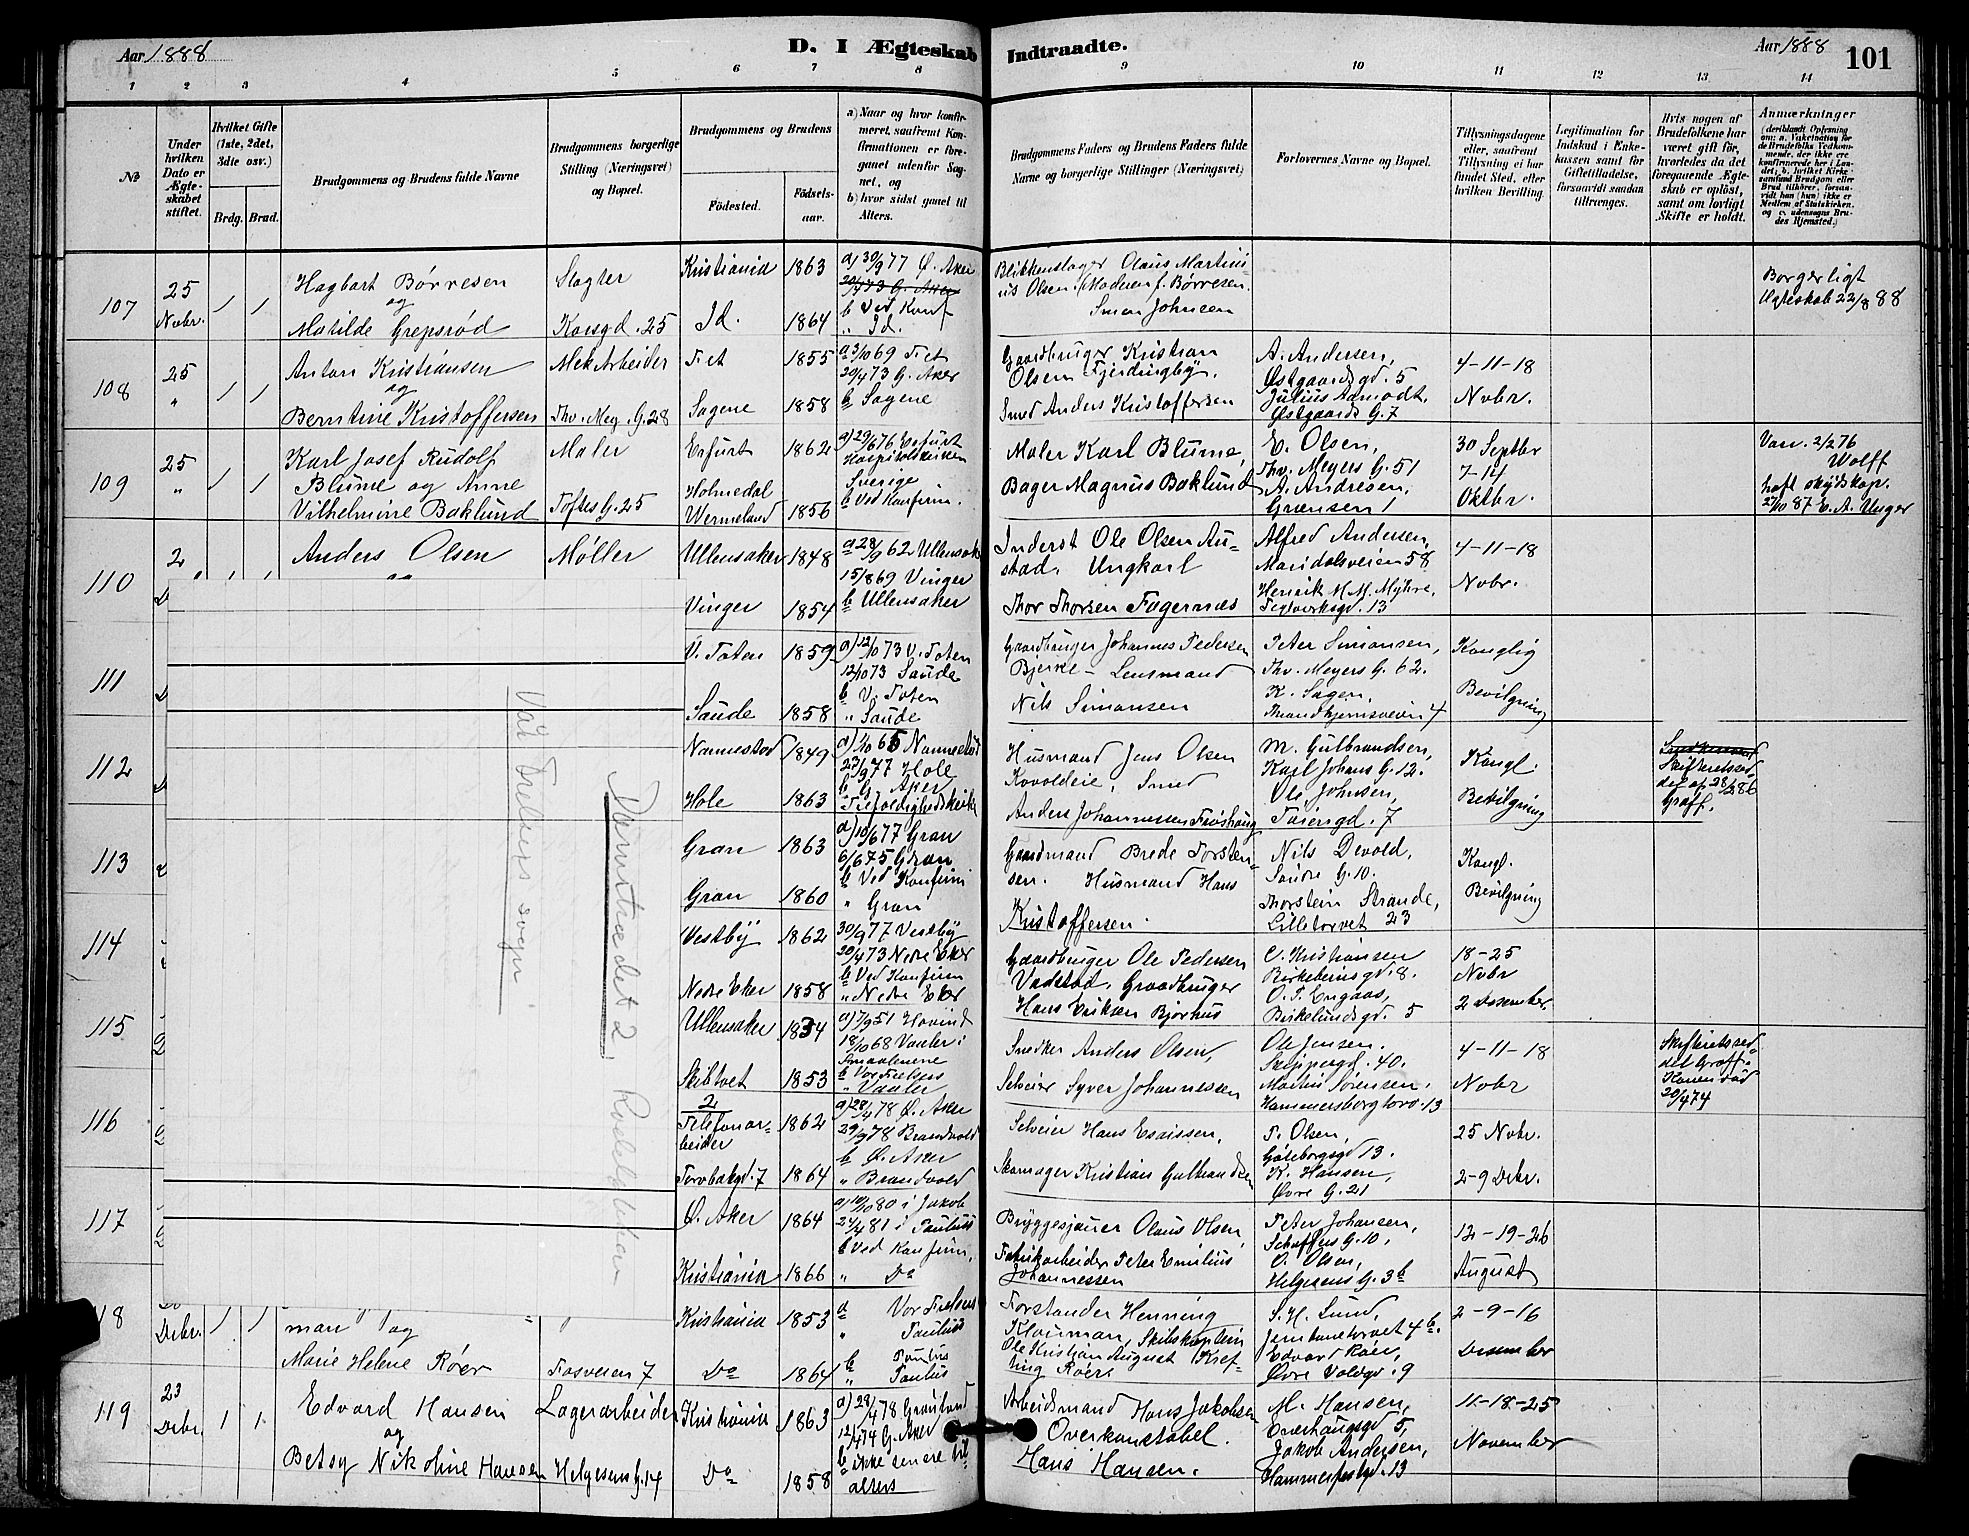 Aar 1888
D. I Ægteskab Indtraadte.
Aar 1888
101
1 2 3 4 5 6 7 8 9 10 11 12 13 14
No
Under hvilken Dato er Ægteskabet stiftet.
Hvilket Gifte (1ste, 2det, 3die osv.)
Brdg. Brud.
Brudgommens og Brudens fulde Navne
Brudgommens borgerlige Stilling (Næringsvei) og Bopæl.
Brudgommens og Brudens
Födested.
Födsels-aar.
a) Naar og hvor konfirmeret, saafremt Konfirmationen er foreganet udenfor Sognet, og
b) hvor sidst ganet til Alters.
Brudgommens Faders og Brudens Faders fulde Navne og borgerlige Stillinger (Næringsvei)
Forlovernes Navne og Bopæl.
Tillysningsdagene eller, saafremt Tillysning ei har fundet Sted, efter hvilken Bevilling.
Legitimation for Indskud i Enkekassen samt for Giftetilladelse, forsaavidt saadan tiltrænges.
Hvis nogen af Brudefolkene har været gift før, hvorledes da det foregaaende Ægteskab er opløst, samt om lovligt Skifte er holdt.
Anmærkninger
107
25 Nobr. 1 1
Hagbart Børresen
og
Matilde Grepsrød
Slagter
Korsgd. 25
Kristiania 1863
Id. 1864
a) 30/9 77 Ø. Aker
20/4 73 G. Aker
b Ved Konf
" Id.
Blikkenslager Olaus Martinius Olsen. Moderen f. Børresen.
Simon Johnsen
Borgerligt
Ægteskab 22/8 88
108
25 " 1 1
Anton Kristiansen
og
Berntine Kristoffersen
Mek Arbeider
Thv. Mey. G. 28
Fet 1855
Sagene 1858
a 3/10 69 Fet
20/4 73 G. Aker
b Sagene
Gaardbruger Kristian
Olsen Fjerdingby.
Smed Anders Kristoffersen
A. Andersen,
Østgaardsgd. 5
Julius Aamodt,
Østgaards G. 7
4-11-18
Nobr.
109
25 " 1 1
Karl Josef Rudolf
Blume og Anne
Vilhelmine Baklund
Maler
Toftes G. 25
Erfurt 1862
Holmedal
Wermeland 1856
a) 29/6 76 Erfurt
Sverige
b Ved Konfirm.
Maler Karl Blume,
Bager Magnus Baklund
E. Olsen,
Thv. Meyers G. 51
A. Andresen,
Grænsen 1
30 Septbr
7-14
Oktbr.
Vacc. 2/2 76
Wolff
haft skydskop.
27/10 87 E. A. Unger
110
2
Anders Olsen
Møller
Ullensaker 1848
Vinger 1854
a 28/9 62 Ullensak
15/8 69 Vinger
b Ullensaker
Inderst Ole Olsen Austad. Ungkarl
Thor Thorsen Fagernæs
Alfred Andersen,
Maridalsveien 58
Henrik M. M. Myhre,
Teglverksgd. 13
4-11-18
Nobr.
111
V. Toten 1859
Saude 1858
a) 12/10 73 V. Toten
12/10 73 Saude
b V. Toten
" Saude
Gaardbruger Johannes Pedersen
Bjerke - Lensmand
Nils Simonsen
Peter Simonsen,
Thv. Meyers G. 62.
K. Sagen,
Trondhjemsveien 4
Konglig
Bevilgning
112
Nannestad 1849
Hole 1863
a) 1/10 65 Nannestad
23/9 77 Hole
b G. Aker
" Trefoldighedskirke
Husmand Jens Olsen
Kovoldeie, Smed
Anders Johannessen Frøshaug
M. Gulbrandsen,
Karl Johans G. 12.
Ole Johnsen,
Tøiengd. 7
Kongl.
Bevilgning
Skifteretsseddel af 28/2 86
Graff.
113
Gran 1863
Gran 1860
a) 10/6 77 Gran
6/6 75 Gran
b Ved Konfirm
" Gran
Gaardmand Brede Torstensen. Husmand Hans
Kristoffersen.
Nils Devold,
Søndre G. 10.
Thorstein Strande,
Lilletorvet 23
Kongl.
Bevilgning
114
Vestby 1862
Nedre Eker 1858
30/9 77 Vestby
20/4 73 Nedre Eker
b Ved Konfirm
" Nedre Eker
Gaardbruger Ole Pedersen
Vadstad. Graadbruger
Hans Eriksen Bjørhus
C. Kristiansen
Birkebeinsgd. 8.
O. P. Engaas,
Birkelundsgd. 5
18-25
Nobr
2 Desember.
115
Ullensaker 1834
Skibtvet 1853
a) 7/9 51 Hovind
18/10 68 Vaaler i
Smaalenene
b Vor Frelsers
" Vaaler
Snekker Anders Olsen,
Selveier Syver Johannessen
Ole Jensen.
Skippergd. 40.
Martin Sørensen,
Hammersborg torv. 13
4-11-18
Nobr
Skifteretsseddel Graff.
Konen død
20/4 74
116
2
Telefonarbeider 1862
Torvbakgd. 7 1864
a) 28/4 78 Ø. Aker
29/9 78 Brandvold
b Ø. Aker
" Brandvold
Selveier Hans Esaissen,
Skomager Kristian Gulbrandsen
T. Olsen,
Gøteborgsgd 13.
K. Hansen,
Øvre G. 21
25 Nobr.
2-9 Debr.
117
Ø. Aker 1864
Kristiania 1866
a) 10/10 80 i Jakob
24/4 81 i Paulus
b Ved Konfirm,
" Do
Bryggesjauer Olaus Olsen,
Fabrikarbeider Peter Emilius
Johannessen
Peter Johansen,
Schaffers G. 10,
O. Olsen,
Helgesens G. 3b
12-19-26
August
Vår Frelsers sogn
Dåmstrædet 2, Rodeløkken
118
Debr. 1 1
man og
Marie Helene Røer
Fosveien 7
Kristiania 1853
Do 1864
a Vor Frelsers
" Paulus
b Paulus
" Paulus
Forstander Henning
Klouman, Skibskaptein
Ole Kristian August Krefting Røer.
S. H. Lund,
Jernbanetorvet 4b.
Edvard Røer,
Øvre Voldgd. 9
2-9-16
Desember
119
23 Debr. 1 1
Edvard Hansen
og
Betsy Nikoline Hansen
Lagerarbeider
Helgesens G. 14
Kristiania 1863
Do 1858
a) 28/4 78 Grønland
12/4 74 G. Aker
b ikke senere til
alters
Arbeidsmand Hans Jakobsen
Overkonstabel.
Hans Hansen.
M. Hansen,
Enerhaugsgd 5,
Jakob Andersen,
Hammerfestgd. 13
11-18-25
November